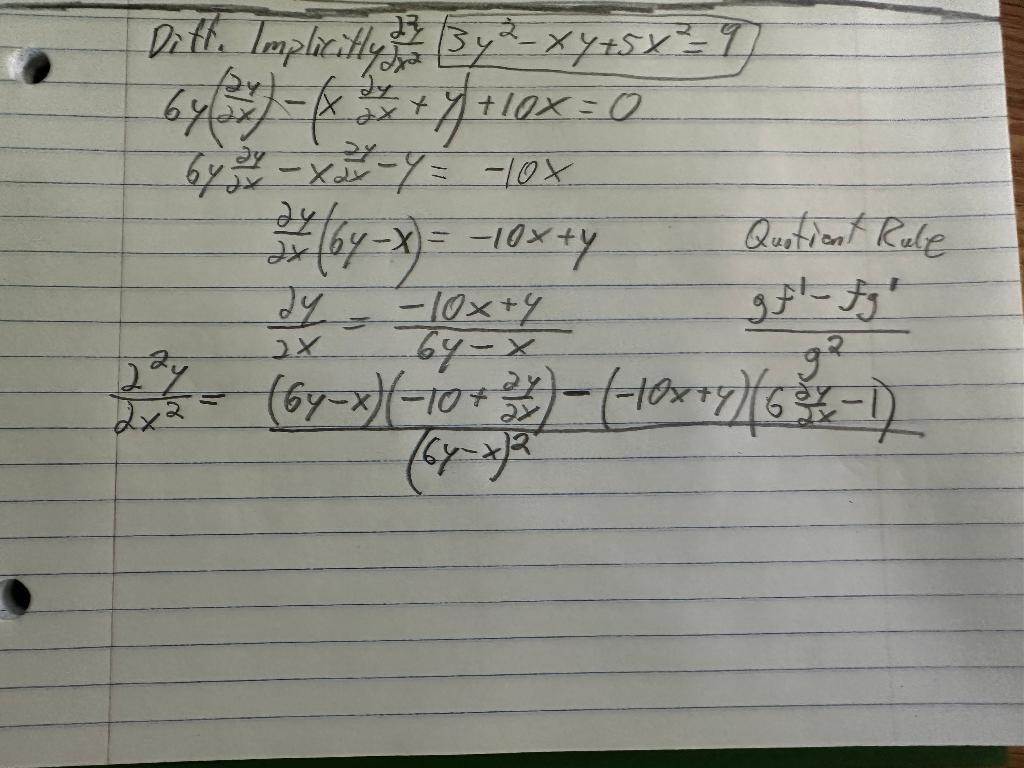 Diff. Implicitly ∂²y/∂x² 3y² - xy + 5x² = 9
6y(∂y/∂x) - (x ∂y/∂x + y) + 10x = 0
6y ∂y/∂x - x ∂y/∂x - y = -10x
∂y/∂x (6y - x) = -10x + y
Quotient Rule
∂y/∂x = (-10x + y)/(6y - x)
(gf' - fg')/g²
∂²y/∂x² = ((6y - x)(-10 + ∂y/∂x) - (-10x + y)(6 ∂y/∂x - 1))/(6y - x)²